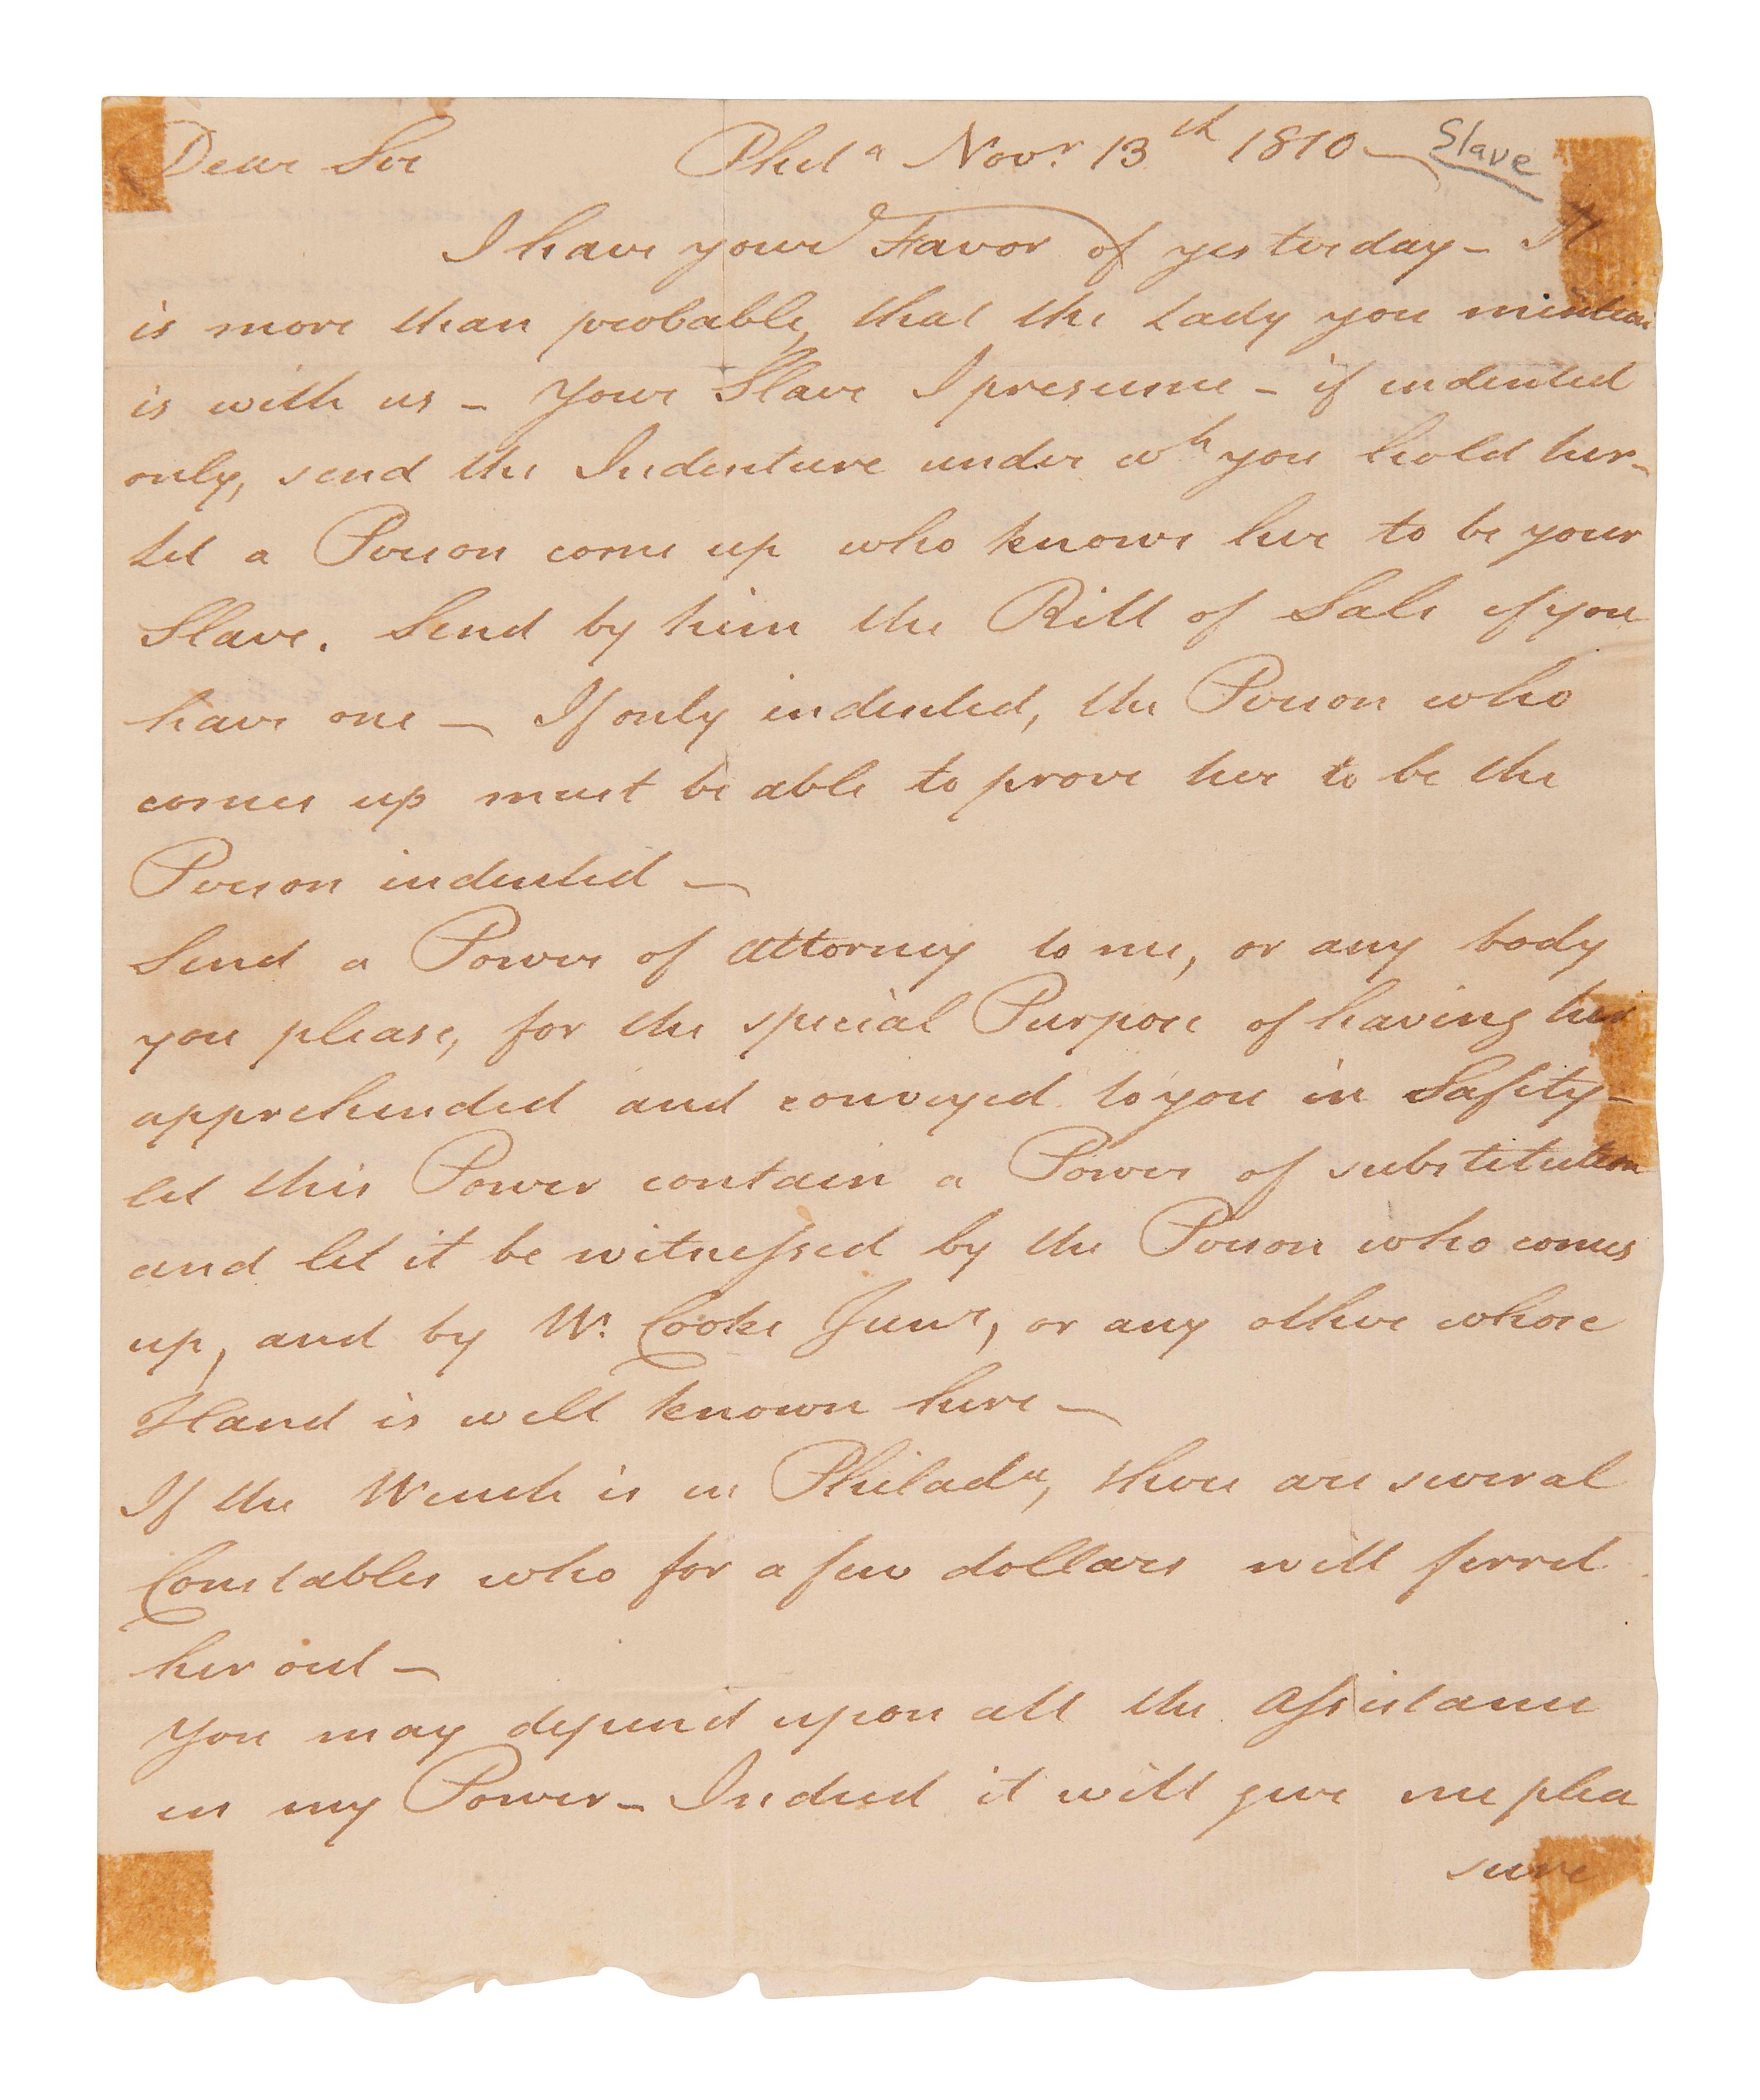 Dear Sir Phila Novr. 13th 1810 — Slave
I have your Favor of yesterday – It
is more than probable, that the Lady you mention
is with us – Your Slave I presume – if indented
only, send the Indenture under wh you hold her–
Let a Person come up who knows her to be your
Slave. Send by him the Bill of Sale if you
have one — If only indented, the Person who
comes up must be able to prove her to be the
Person indented —
Send a Power of Attorney to me, or any body
you please, for the special Purpose of having her
apprehended and conveyed to you in Safety–
let this Power contain a Power of substitution
and let it be witnessed by the Person who comes
up, and by W. Cooke Junr, or any other whose
Hand is well known here —
If the Wench is in Philada, there are several
Constables who for a few dollars will ferret
her out —
You may depend upon all the Assistance
in my Power – Indeed it will give me plea
sure